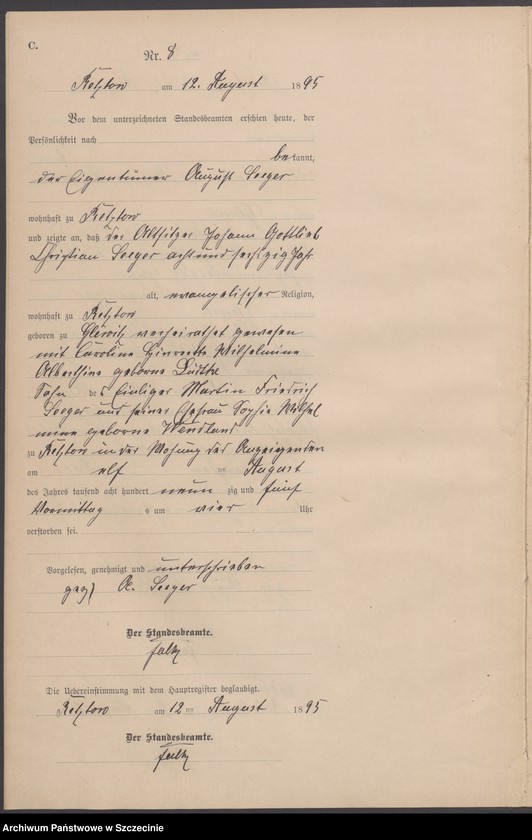 C.
Nr. 8
Retztow am 12. August 1895
Vor dem unterzeichneten Standesbeamten erschien heute, der
Persönlichkeit nach
bekannt,
der Eigentümer August Seeger
wohnhaft zu Retztow
und zeigte an, daß der Altsitzer Johann Gottlieb
Christian Seeger achtundsechzig Jahr
alt, evangelischer Religion,
wohnhaft zu Retztow
geboren zu verheirathet gewesen
mit Caroline Henriette Wilhelmine
Albertine geborne Lüdtke
Sohn des Martin Friedrich
Seeger und seiner Ehefrau Sophie Wilhel
mine geborne Wendland
zu Retztow in der Wohung des Anzeigenden
am elf ten August
des Jahres tausend acht hundert neun zig und fünf
Vormittag s um vier Uhr
verstorben sei.
Vorgelesen, genehmigt und unterschrieben
gez) A. Seeger
Der Standesbeamte.
Falk
Die Uebereinstimmung mit dem Hauptregister beglaubigt.
Retztow am 12 ten August 1895
Der Standesbeamte.
Falk
Archiwum Państwowe w Szczecinie